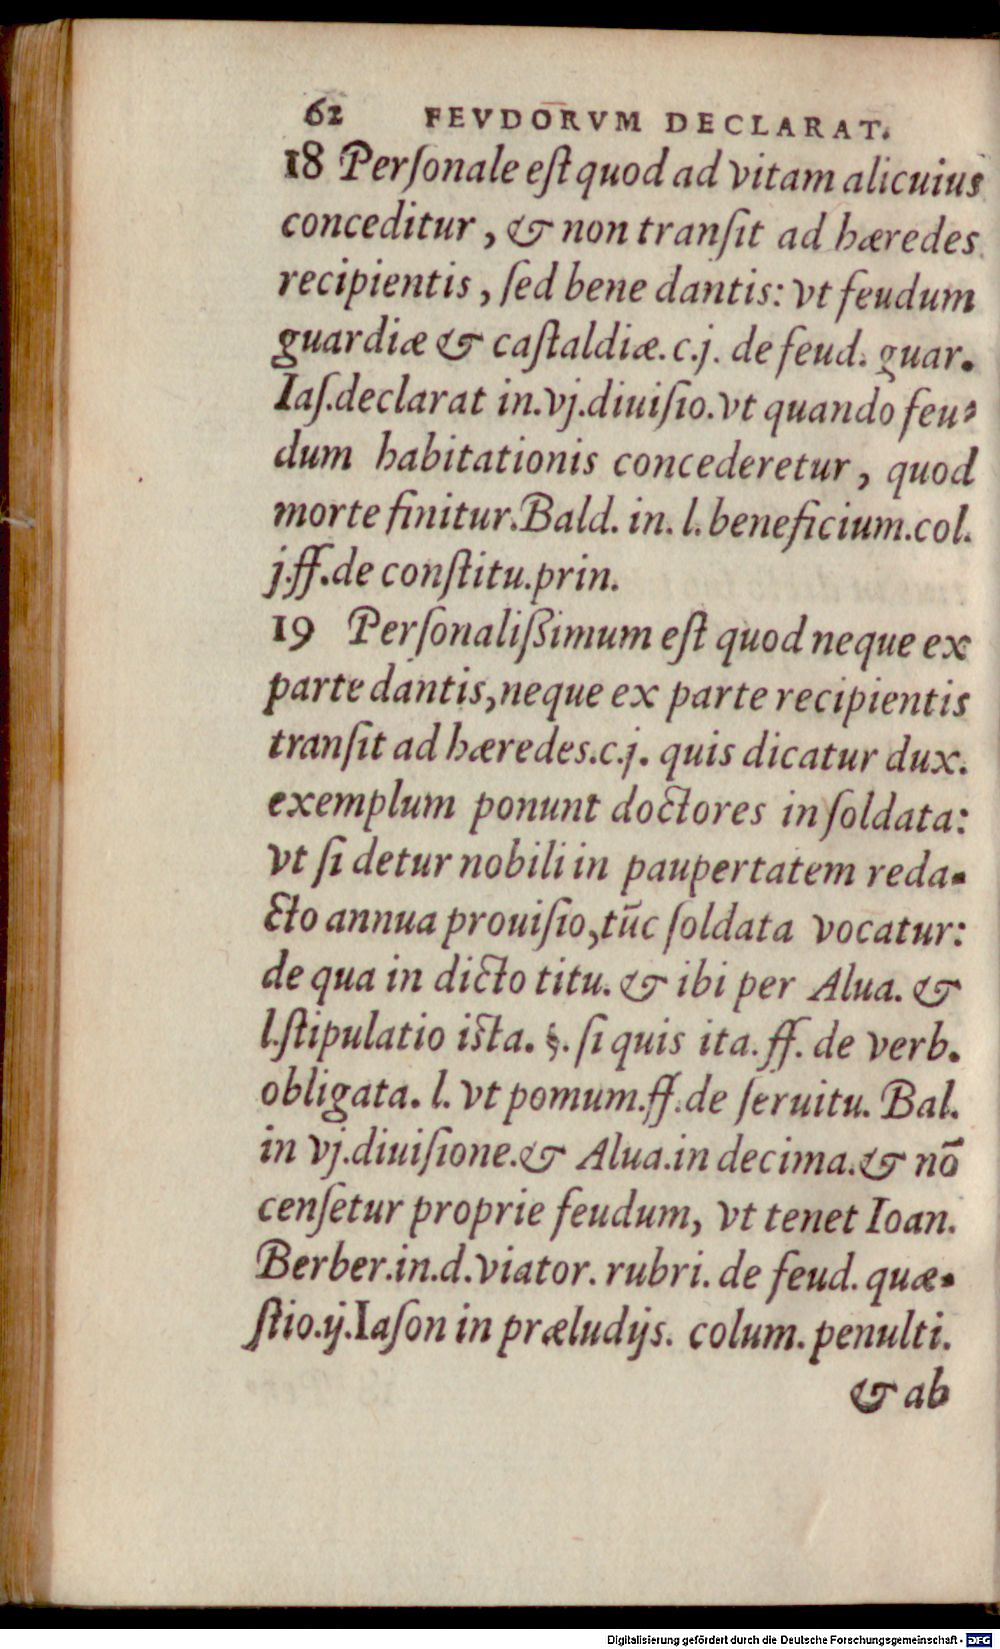 62 FEVDORVM DECLARAT.
18 Perſonale eſt quod ad vitam alicuius
conceditur, & non tranſit ad hæredes
recipientis, ſed bene dantis: vt feudum
guardiæ & caſtaldiæ. c.j. de feud. guar.
Iaſ.declarat in.vj.diuiſio.vt quando feu⸗
dum habitationis concederetur, quod
morte finitur.Bald. in. l. beneficium.col.
j.ff.de conſtitu.prin.
19 Perſonaliſſimum eſt quod neque ex
parte dantis,neque ex parte recipientis
tranſit ad hæredes.c.j. quis dicatur dux.
exemplum ponunt doctores in ſoldata:
vt ſi detur nobili in paupertatem reda-
cto annua prouiſio,tūc ſoldata vocatur:
de qua in dicto titu. & ibi per Alua. &
l.ſtipulatio iſta. §. ſi quis ita. ff. de verb.
obligata. l. vt pomum.ff.de ſeruitu. Bal.
in vj.diuiſione.& Alua.in decima.& nō
cenſetur proprie feudum, vt tenet Ioan.
Berber.in.d.viator. rubri. de feud. quæ-
ſtio.ij.Iaſon in præludijs. colum. penulti.
& ab
Digitalisierung gefördert durch die Deutsche Forschungsgemeinschaft - DFG